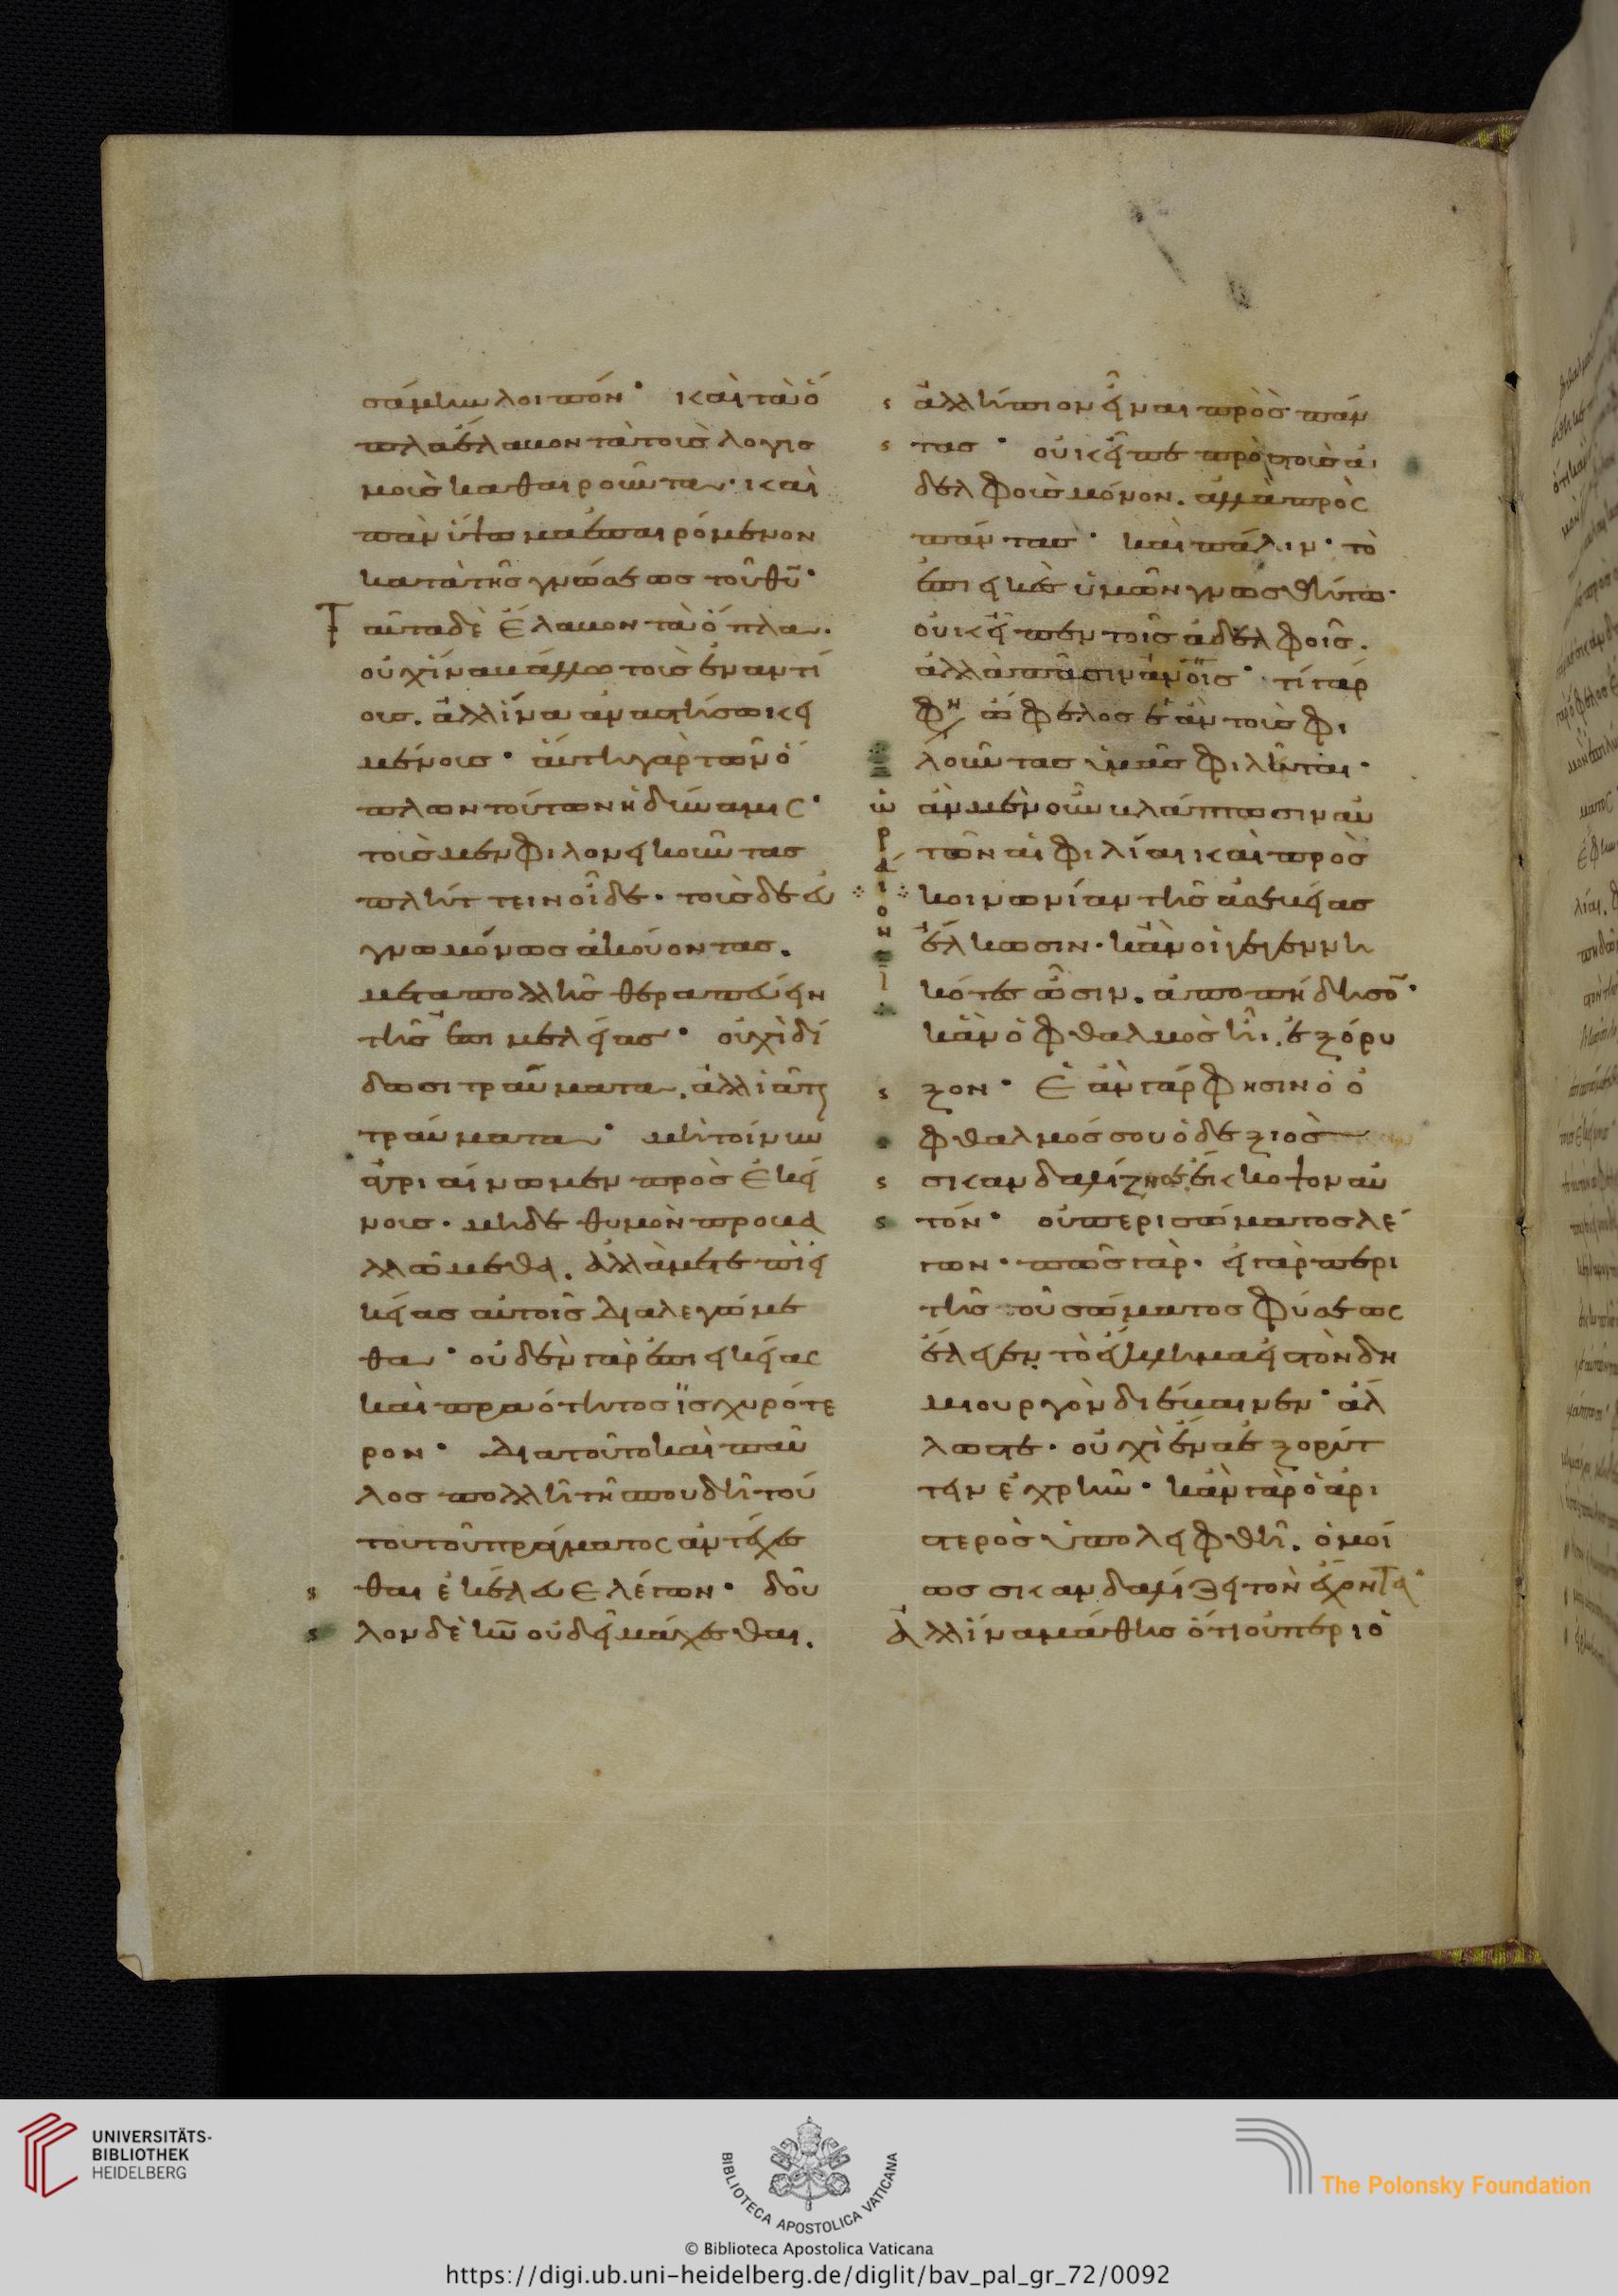 σάμην λοιπόν· καὶ τὰ ὅ
πλα ἔλαβον τὰ τοὺς λογισ
μοὺς καθαιροῦντα· καὶ
πᾶν ὕψωμα ἐπαιρόμενον
κατὰ τῆς γνώσεως τοῦ θ̅υ̅·
Ταῦτα δὲ ἔλαβον τὰ ὅπλα.
οὐχ ἵνα βάλλω τοὺς ἐναντί
ους. ἀλλ' ἵνα ἀναστήσω κει
μένους· αὕτη γὰρ τῶν ὅ
πλων τούτων ἡ δύναμις·
τοὺς μὲν φιλονεικοῦντας
πλήττειν οἶδε· τοὺς δὲ εὐ
γνωμόνως ἀκούοντας.
μετὰ πολλῆς θεραπεύειν
τῆς ἐπιμελείας· οὐχὶ δί
δωσι τραύματα. ἀλλ' ἰᾶται
τραύματα· μὴ τοίνυν
ἀγριαίνωμεν πρὸς ἐκεί
νους. μηδὲ θυμὸν προβα
λλώμεθα. ἀλλὰ μετ' ἐπιει
κείας αὐτοῖς διαλεγώμε
θα· οὐδὲν γὰρ ἐπιεικείας
καὶ πραότητος ἰσχυρότε
ρον· διὰ τοῦτο καὶ παῦ
λος πολλῇ τῇ σπουδῇ τού
του τοῦ πράγματος ἀντέχεσ
θαι ἐκέλευε λέγων· δοῦ
λον δὲ κ̅υ̅ οὐ δεῖ μάχεσθαι.
ἀλλ' ἤπιον εἶναι πρὸς πάν
τας· οὐκ εἶπε πρὸς τοὺς ἀ
δελφοὺς μόνον. ἀλλὰ πρὸς
πάντας· καὶ πάλιν· τὸ
ἐπιεικὲς ὑμῶν γνωσθήτω·
οὐκ εἶπεν τοῖς ἀδελφοῖς.
ἀλλὰ πᾶσιν ἀν̅ο̅ις· τί γάρ
φη ὤφελος ἐὰν τοὺς φι
λοῦντας ὑμᾶς φιλῆται·
ἂν μὲν οὖν βλάπτωσιν αὐ
τῶν αἱ φιλίαι καὶ πρὸς
κοινωνίαν τῆς ἀσεβείας
ἕλκωσιν· κἂν οἱ γεγεννη
κότες ὦσιν. ἀποπήδησον·
κἂν ὀφθαλμὸς ᾖ. ἐξόρυ
ξον· ἐὰν γάρ φησιν ὁ ὀ
φθαλμός σου ὁ δεξιὸς
σκανδαλίζῃ σε ἔκκοψον αὐ
τόν· οὐ περὶ σώματος λέ
γων· πῶς γάρ· εἰ γὰρ περὶ
τῆς τοῦ σώματος φύσεως
ἔλεγεν τὸ ἔγκλημα εἰς τὸν δη
μιουργὸν διέβαινεν· ἄλ
λως τε· οὐχὶ ἕνα ἐξορύτ
τειν ἐχρῆν· κἂν γὰρ ὁ ἀρι
στερὸς ὑπολειφθῇ. ὁμοί
ως σκανδαλίζει τὸν ἔχοντα·
Ἀλλ' ἵνα μάθῃς ὅτι οὐ περὶ ὀ
ὡραῖον
UNIVERSITÄTS-
BIBLIOTHEK
HEIDELBERG
BIBLIOTECA APOSTOLICA VATICANA
© Biblioteca Apostolica Vaticana
The Polonsky Foundation
https://digi.ub.uni-heidelberg.de/diglit/bav_pal_gr_72/0092